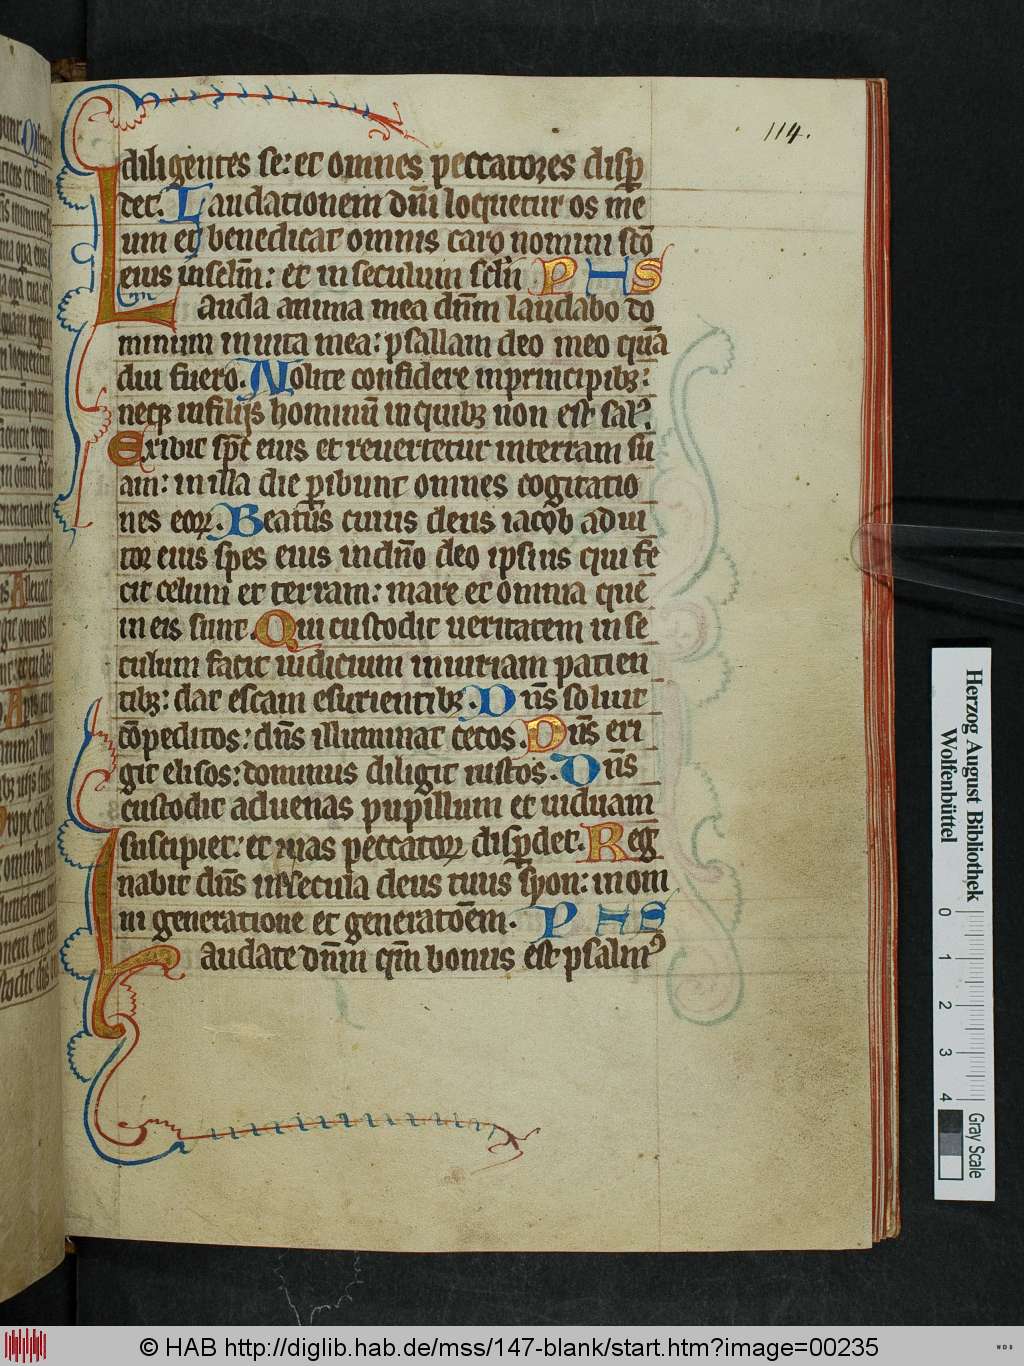 114.
diligentes se: et omnes peccatores disp̄
det. Laudationem dn̄i loquetur os me
um et benedicat omnis caro nomini scō
eius in sclm̄: et in seculum scl̄i PHS
Lauda anima mea dn̄m laudabo do
minum in uita mea: psallam deo meo quā
diu fuero. Nolite confidere in principibꝫ:
neqꝫ in filijs hominū in quibꝫ non est salꝰ.
Exibit sp̄c eius et reuertetur in terram su
am: in illa die ꝑibunt omnes cogitatio
nes eoꝝ. Beatus cuius deus iacob adiu
tor eius spes eius in dn̄o deo ipsius qui fe
cit celum et terram: mare et omnia que
in eis sunt. Qui custodit ueritatem in se
culum facit iudicium iniuriam patien
tibꝫ: dat escam esurientibꝫ. Dn̄s soluit
cōpeditos: dn̄s illuminat cecos. Dn̄s eri
git elisos: dominus diligit iustos. Dn̄s
custodit aduenas pupillum et uiduam
suscipiet: et uias peccatoꝝ disꝑdet. Reg
nabit dn̄s in secula deus tuus syon: in om
ni generatione et generatōem. PHS
Laudate dn̄m qm̄ bonus est psalmꝰ
Herzog August Bibliothek
Wolfenbüttel
0 1 2 3 4
Gray Scale
© HAB http://diglib.hab.de/mss/147-blank/start.htm?image=00235